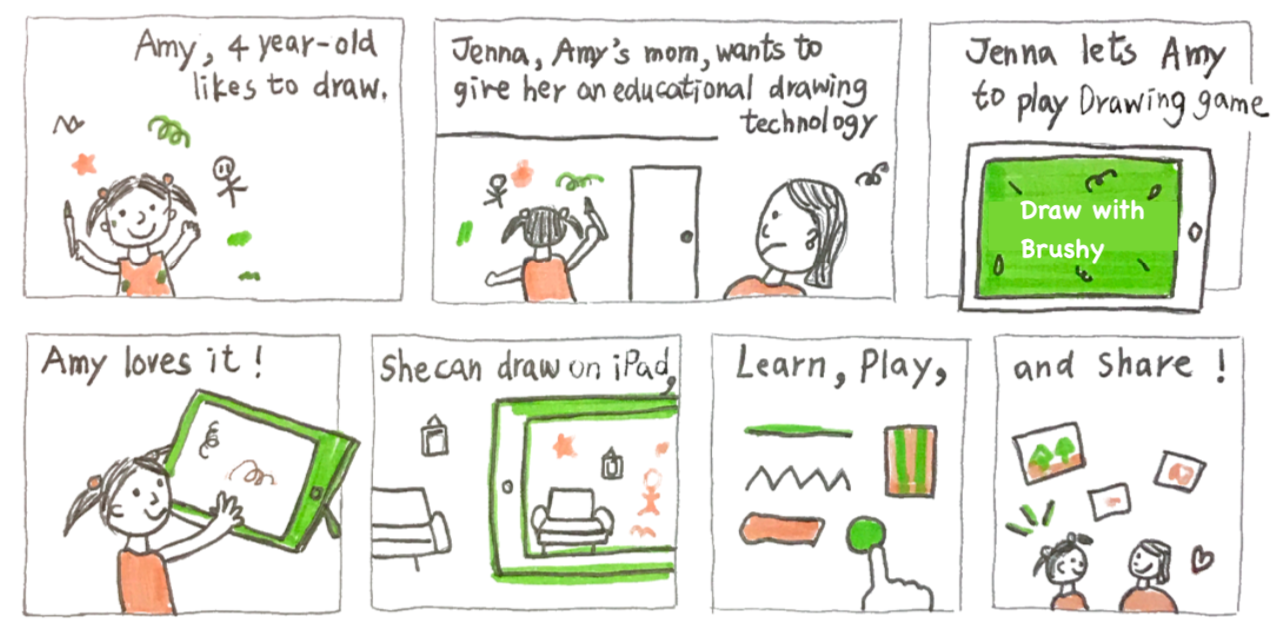 Amy, 4 year-old
likes to draw.
Jenna, Amy's mom, wants to
give her an educational drawing
technology
Jenna lets Amy
to play Drawing game
Draw with
Brushy
Amy loves it!
She can draw on iPad,
Learn, Play,
and share!